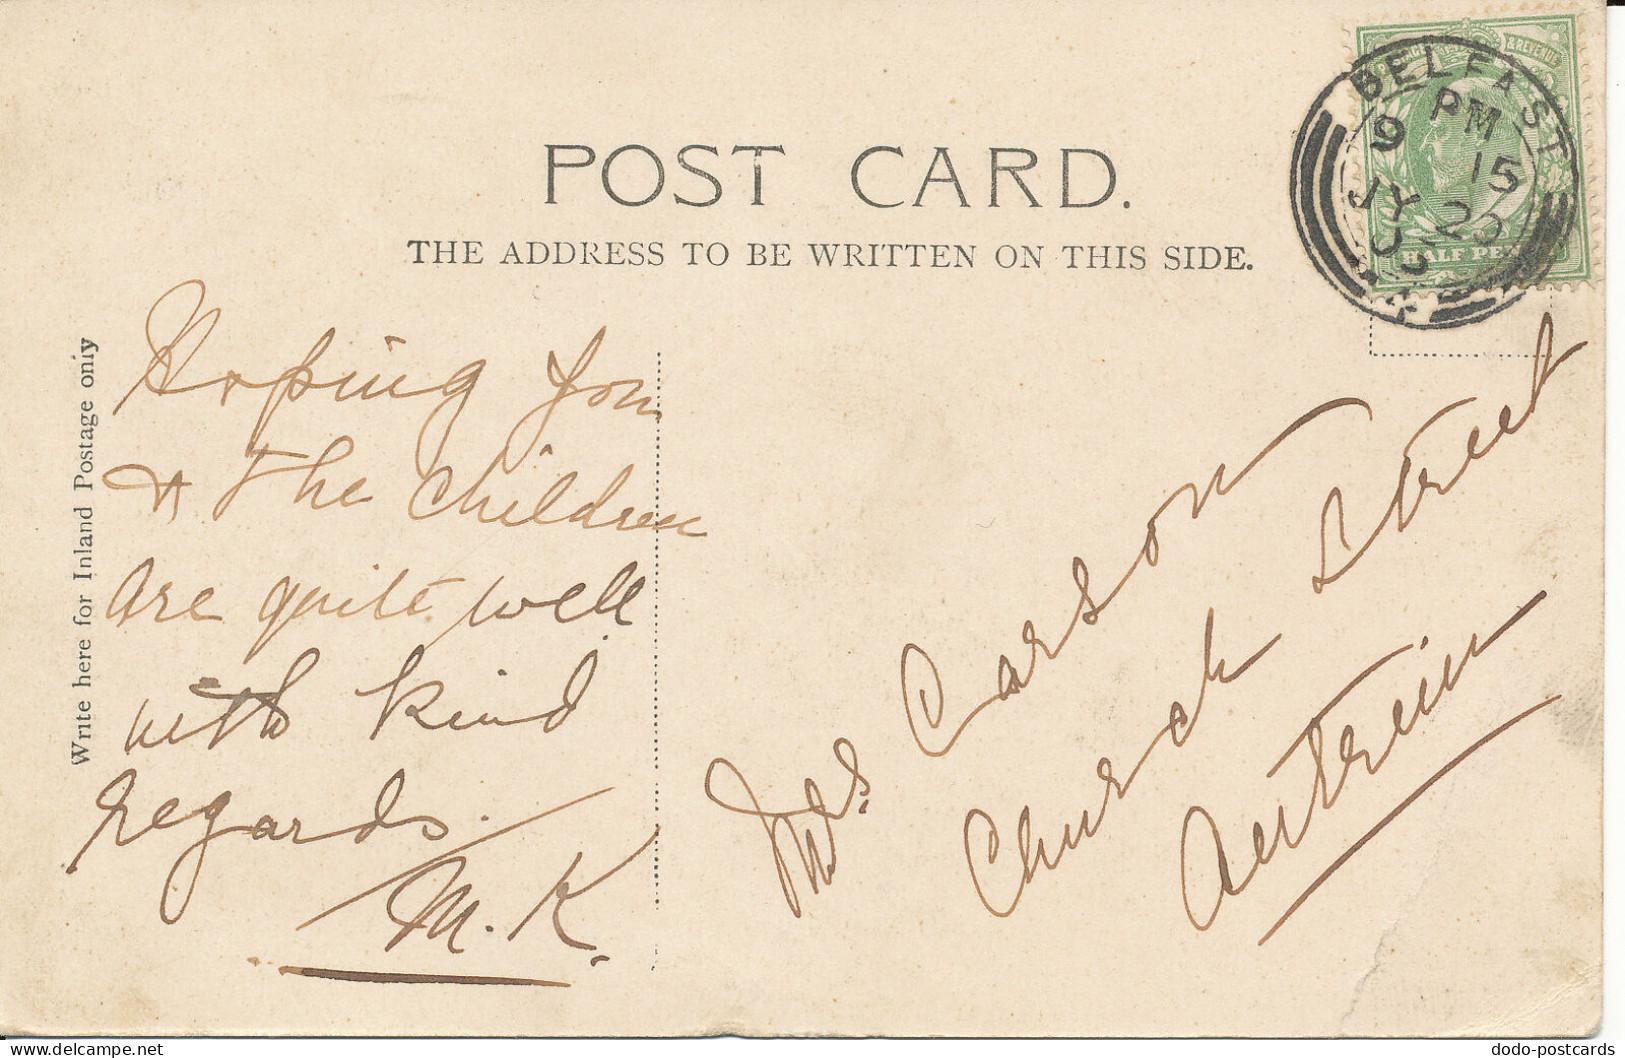 POST CARD.
THE ADDRESS TO BE WRITTEN ON THIS SIDE.
Write here for Inland Postage only
Hoping you
& the children
are quite well
with kind
regards.
M. K.
Mrs. Carson
Church Street
Antrim
BELFAST
9 15 PM
JY 20
& REVENUE
HALF PE
dodo-postcards